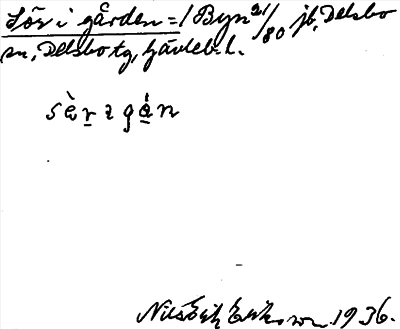 Sör i gården = 1 Byn 21/80 jb, Delsbo
sn, Delsbo tg, Gävleb. l.
sè̱r ı gá̱n
Nils Erik Eriksson 1936.